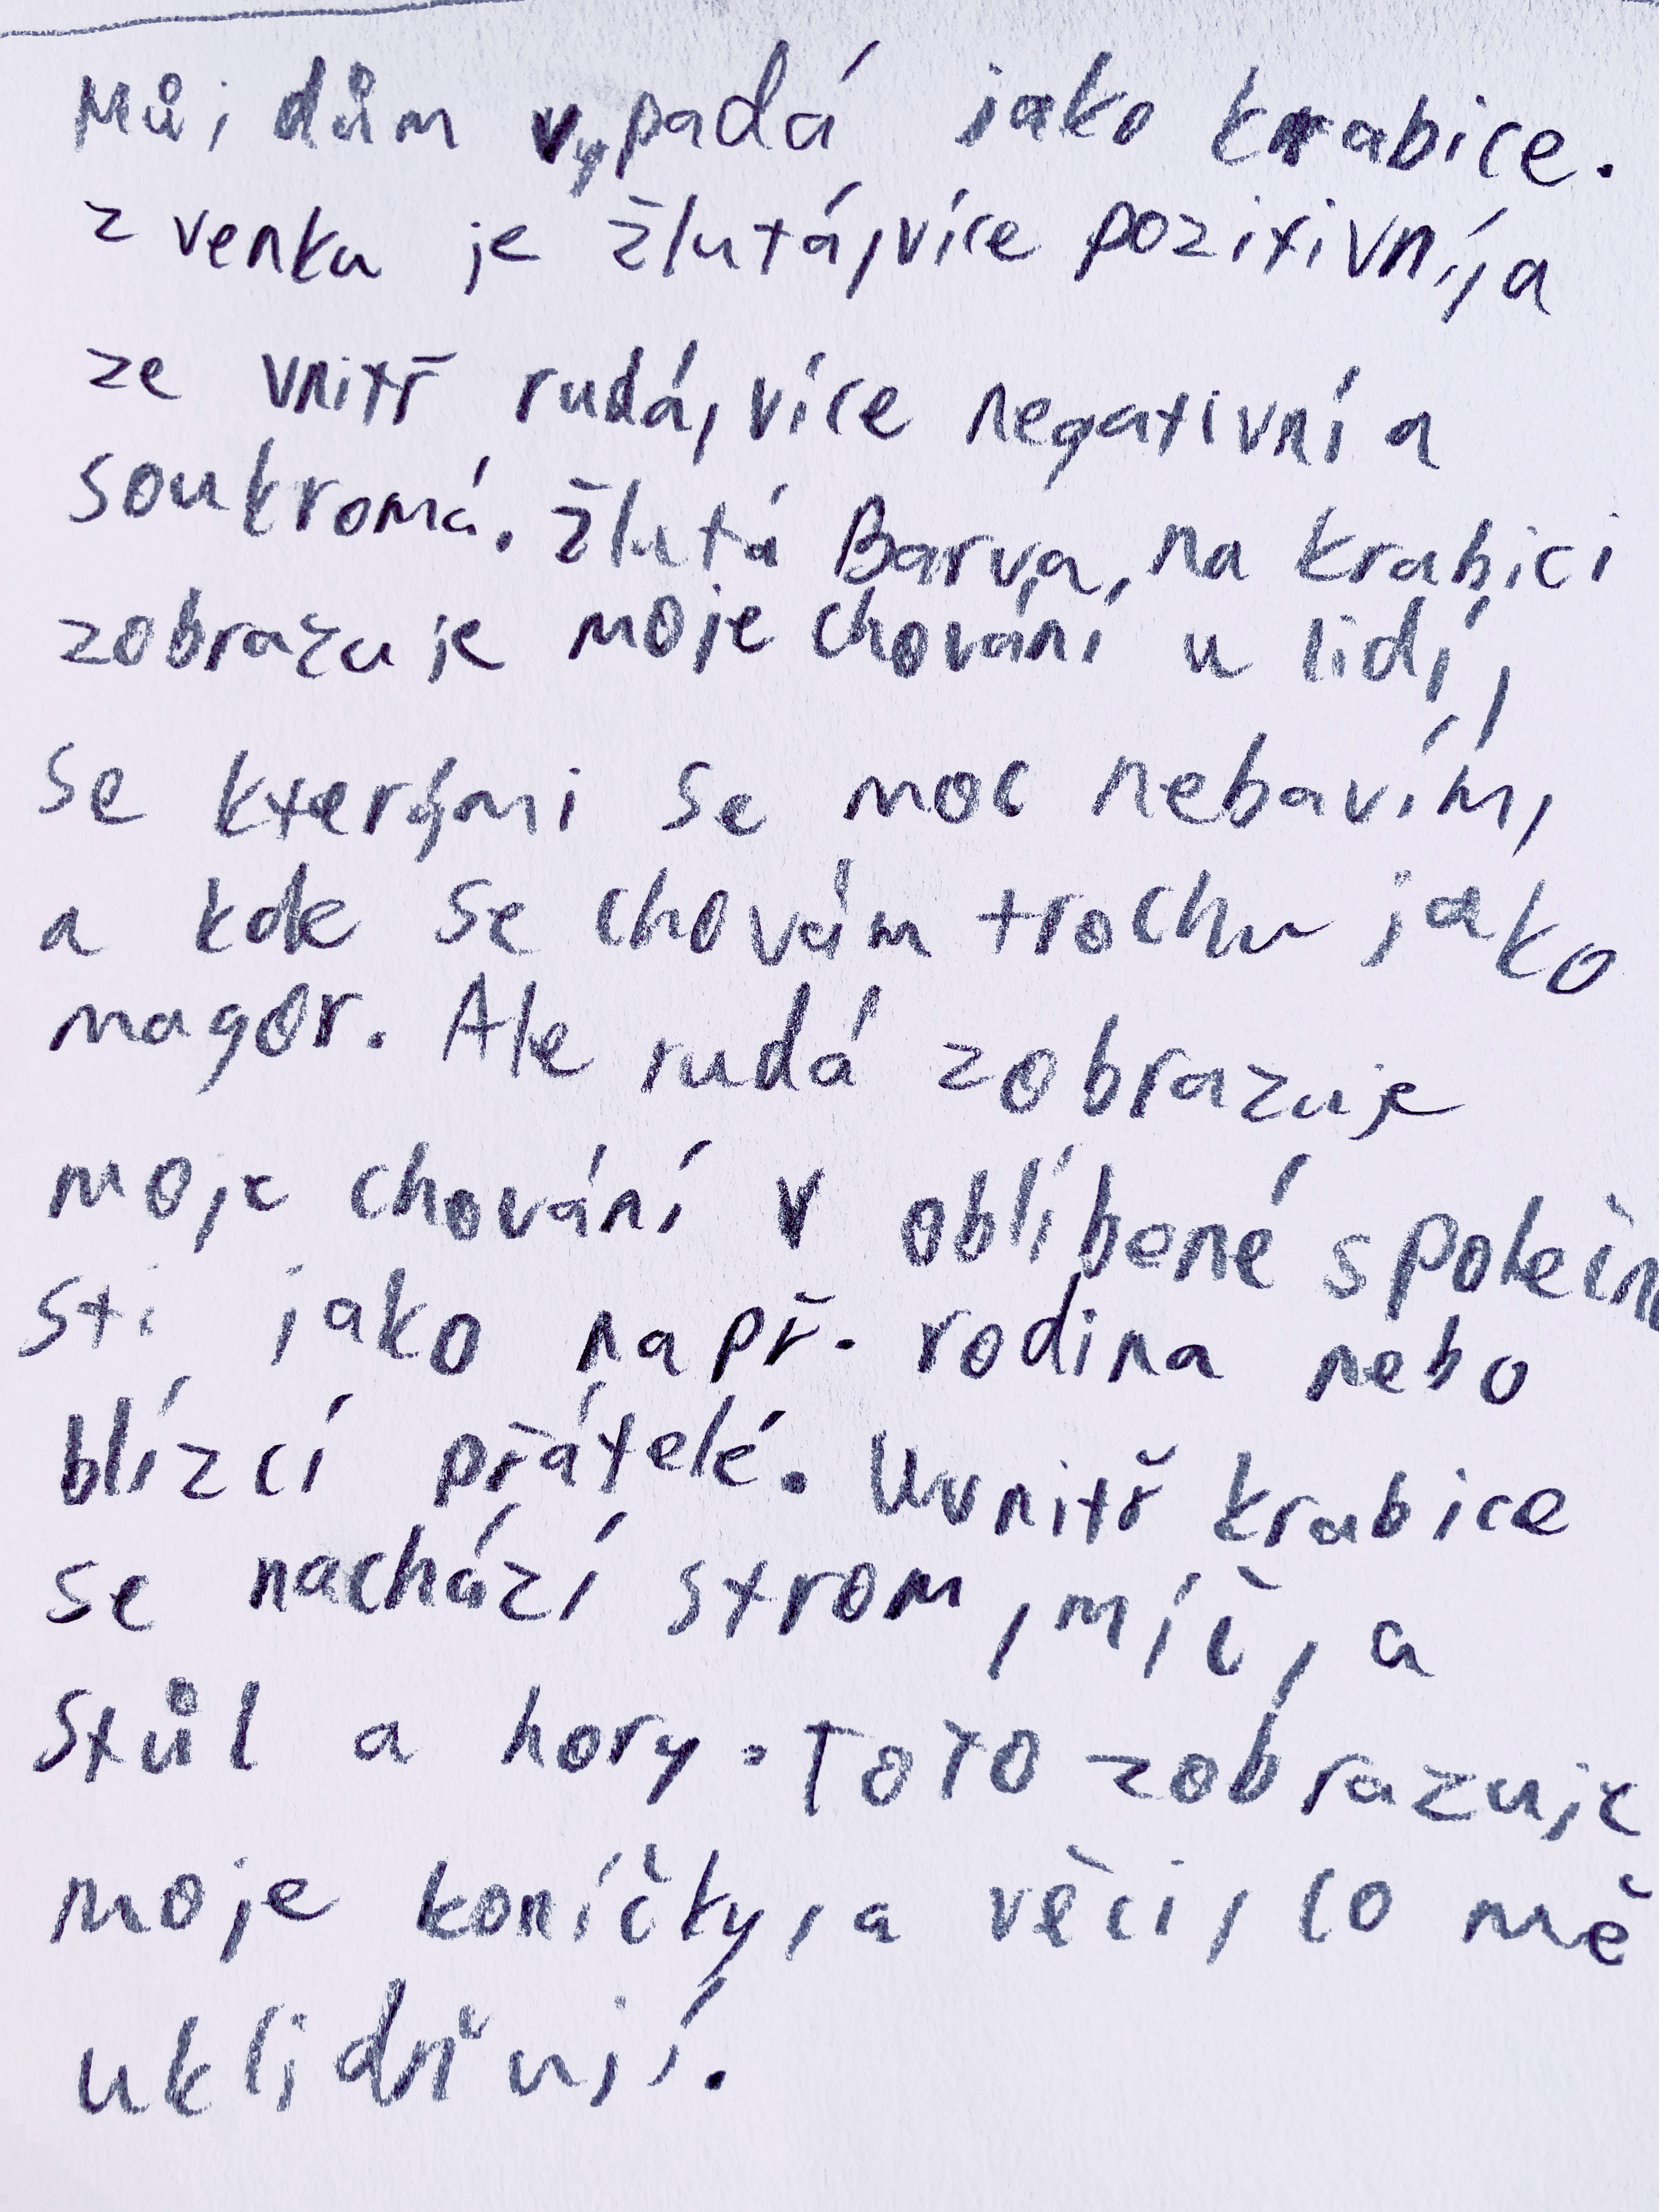 Můj dům vypadá jako krabice.
z venku je žlutá, více pozitivní, a
ze vnitř rudá, více negativní a
soukromá. Žlutá Barva, na krabici
zobrazuje moje chování u lidí,
se kterými se moc nebavím,
a kde se chovám trochu jako
magor. Ale rudá zobrazuje
moje chování v oblíbené společn
sti jako např. rodina nebo
blízcí přátelé. Uvnitř krabice
se nachází strom, míč, a
stůl a hory. Toto zobrazuje
moje koníčky, a věci, co mě
uklidňují.